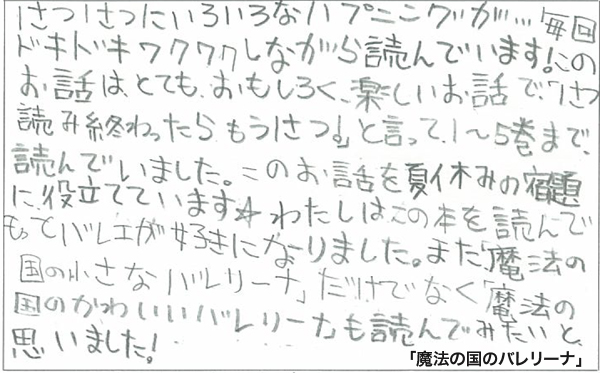 1さつ1さつにいろいろなハプニングが…!毎回
ドキドキワクワクしながら読んでいます!この
お話は、とても、おもしろく、楽しいお話で、1さつ
読み終わったら「もう1さつ!」と言って、1~5巻まで、
読んでいました。このお話を夏休みの宿題
に役立てています☆わたしはこの本を読んで
もっとバレエが好きになりました。また「魔法の
国の小さなバレリーナ」だけでなく「魔法の
国のかわいいバレリーナ」も読んでみたいと、
思いました!
「魔法の国のバレリーナ」